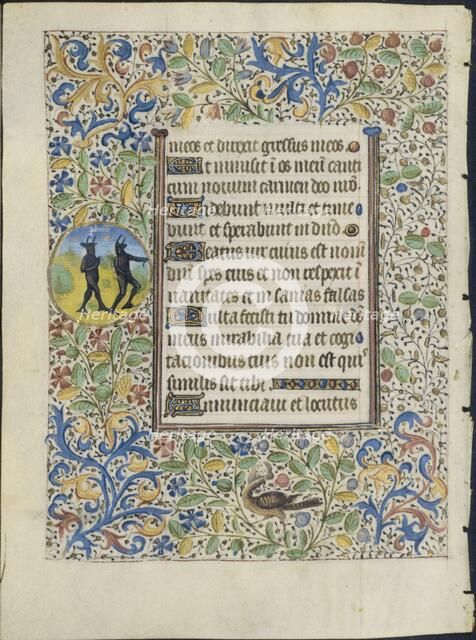 meos et direxit gressus meos
Et inmisit ī os meū canti
cum novum carmen deo nr̄o
Videbunt multi et time
bunt et sperabunt in dn̄o
Beatus vir cuius est nom̄
dn̄i spes eius et non respexit ī
vanitates et insanias falsas
Multa fecisti tu domine de
meus mirabilia tua et cogi
tacionibus tuis non est qui
similis sit tibi
Annunciavi et locutus